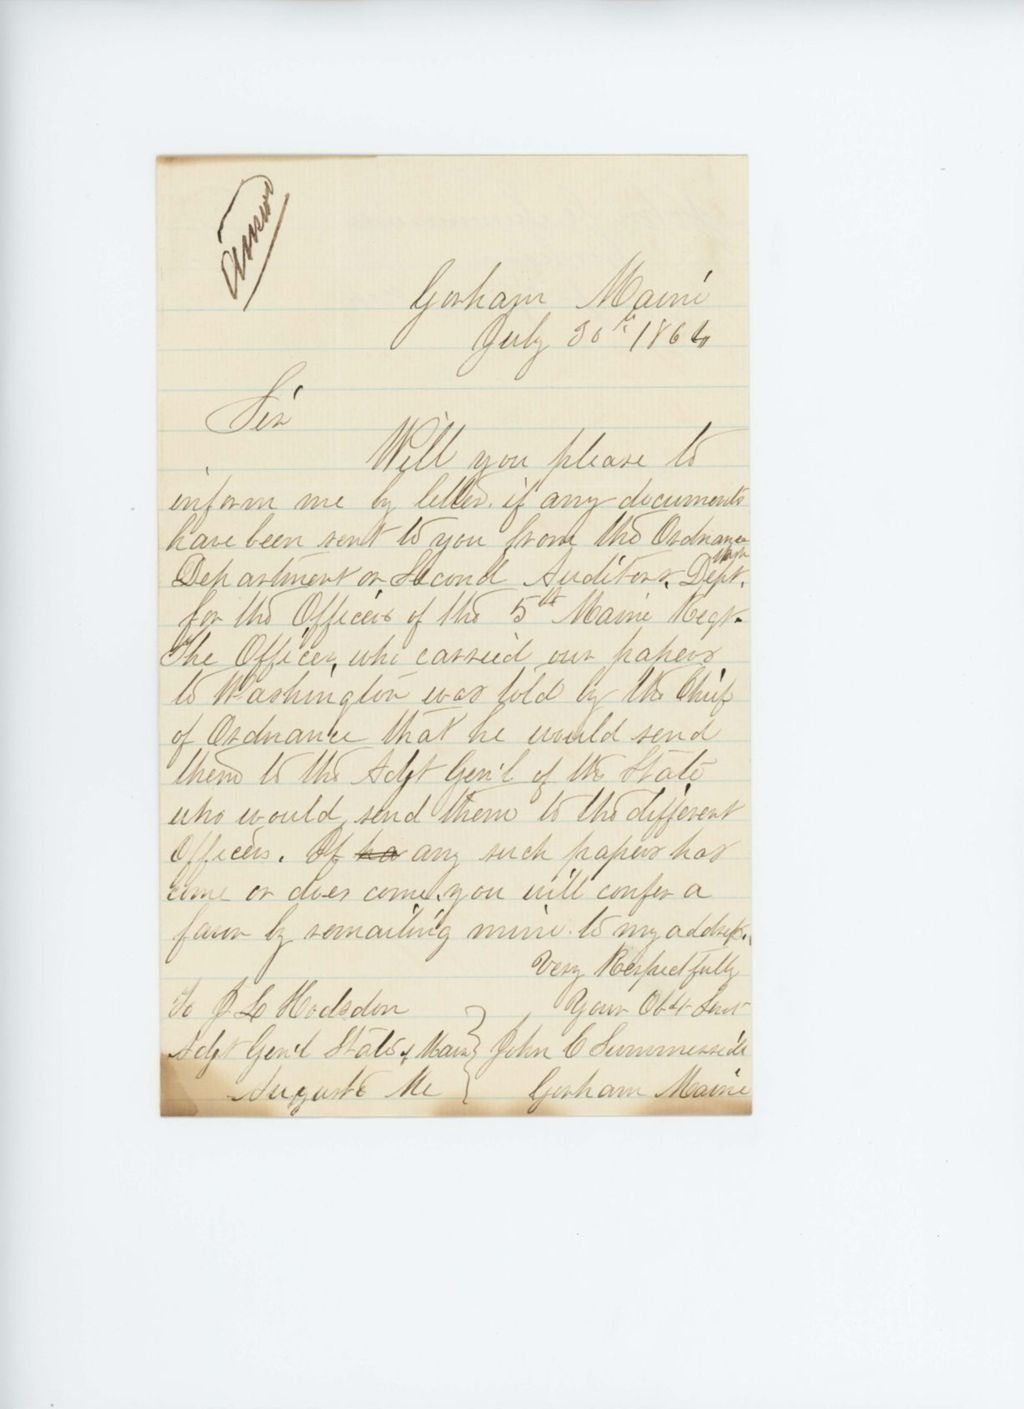 Answd
Gorham Maine
July 30th 1864
Sir
Will you please to
inform me by letter if any documents
have been sent to you from the Ordnance
Wash
Department or Second Auditors Dept.
for the Officers of the 5th Maine Regt.
The Officer who carried our papers
to Washington was told by the Chief
of Ordnance that he would send
them to the Adjt Gen'l of the State
who would send them to the different
Officers. If ha any such papers has
come or does come you will confer a
favor by remailing mine to my address.
Very Respectfully
Your Obt Servt
To J L Hodsdon
Adjt Gen'l State of Maine } John C Summersides
Augusta Me } Gorham Maine